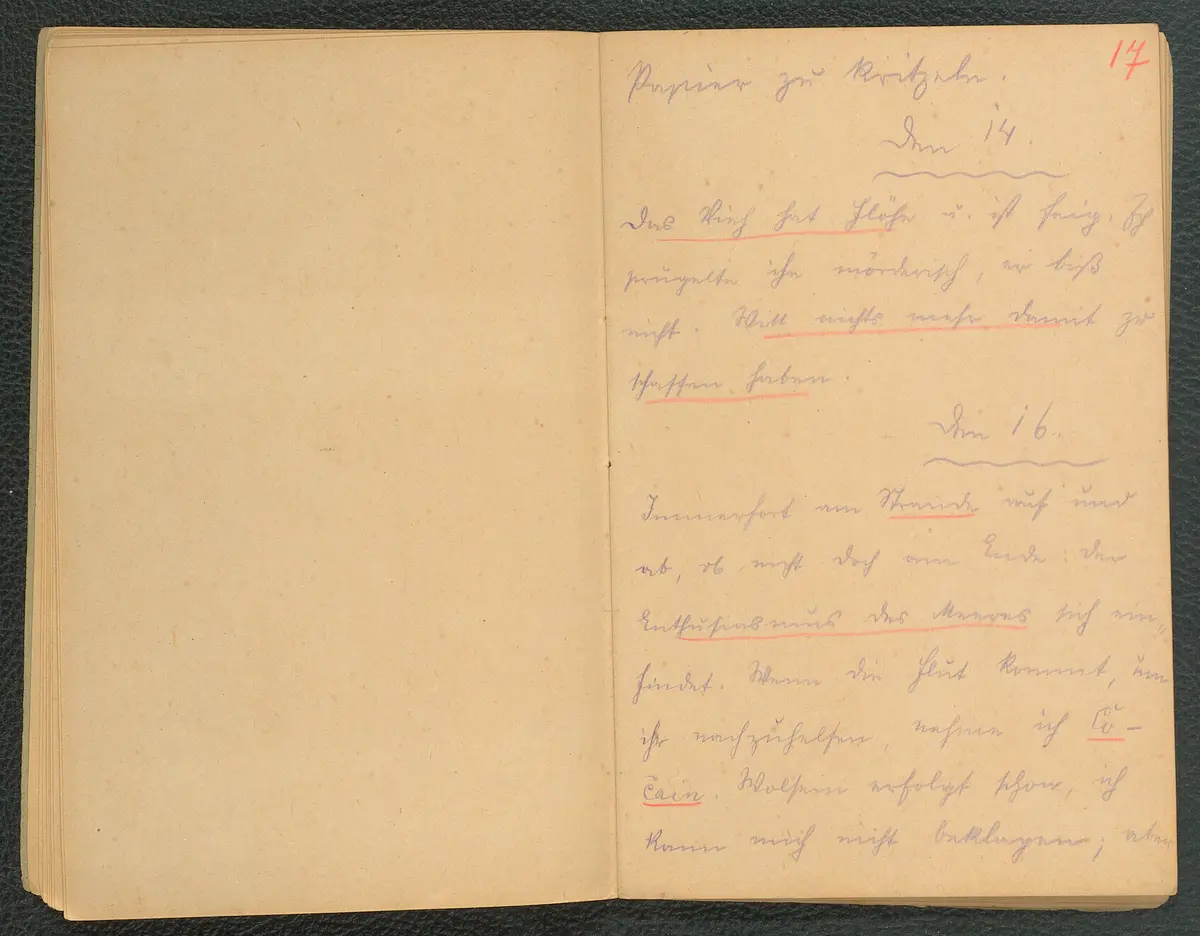 17
Papier zu kritzeln.
Den 14.
Das Vieh hat Flöhe u. ist feig. Ich
prügelte ihn mörderisch, er biß
nicht. Will nichts mehr damit zu
schaffen haben.
Den 16.
Immerfort am Strande auf und
ab, ob nicht doch am Ende der
Enthusiasmus des Meeres sich ein
findet. Wenn die Flut kommt, um
ihr nachzuhelfen, nehme ich Co-
cain. erfolgt schon, ich
kann mich nicht beklagen; aber